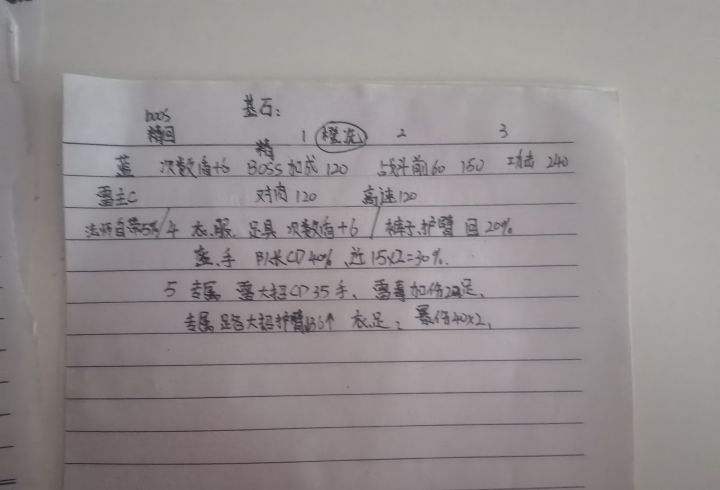 boos 基石:
精回 1 橙洗 2 3
蓝 次数值+6 精 BOSS加成120 战斗前60 150 攻击 240
雷主C 对肉120 高速120
法师自带5%/4 衣服 足具 次数值+6 / 裤子、护臂 回20%
盔、手 队长CD40% 近15x2=30%.
5 专属 雷大招CD35手、雷毒加伤 足、
专属 大招护臂 36个 衣足: 暴伤40x2,